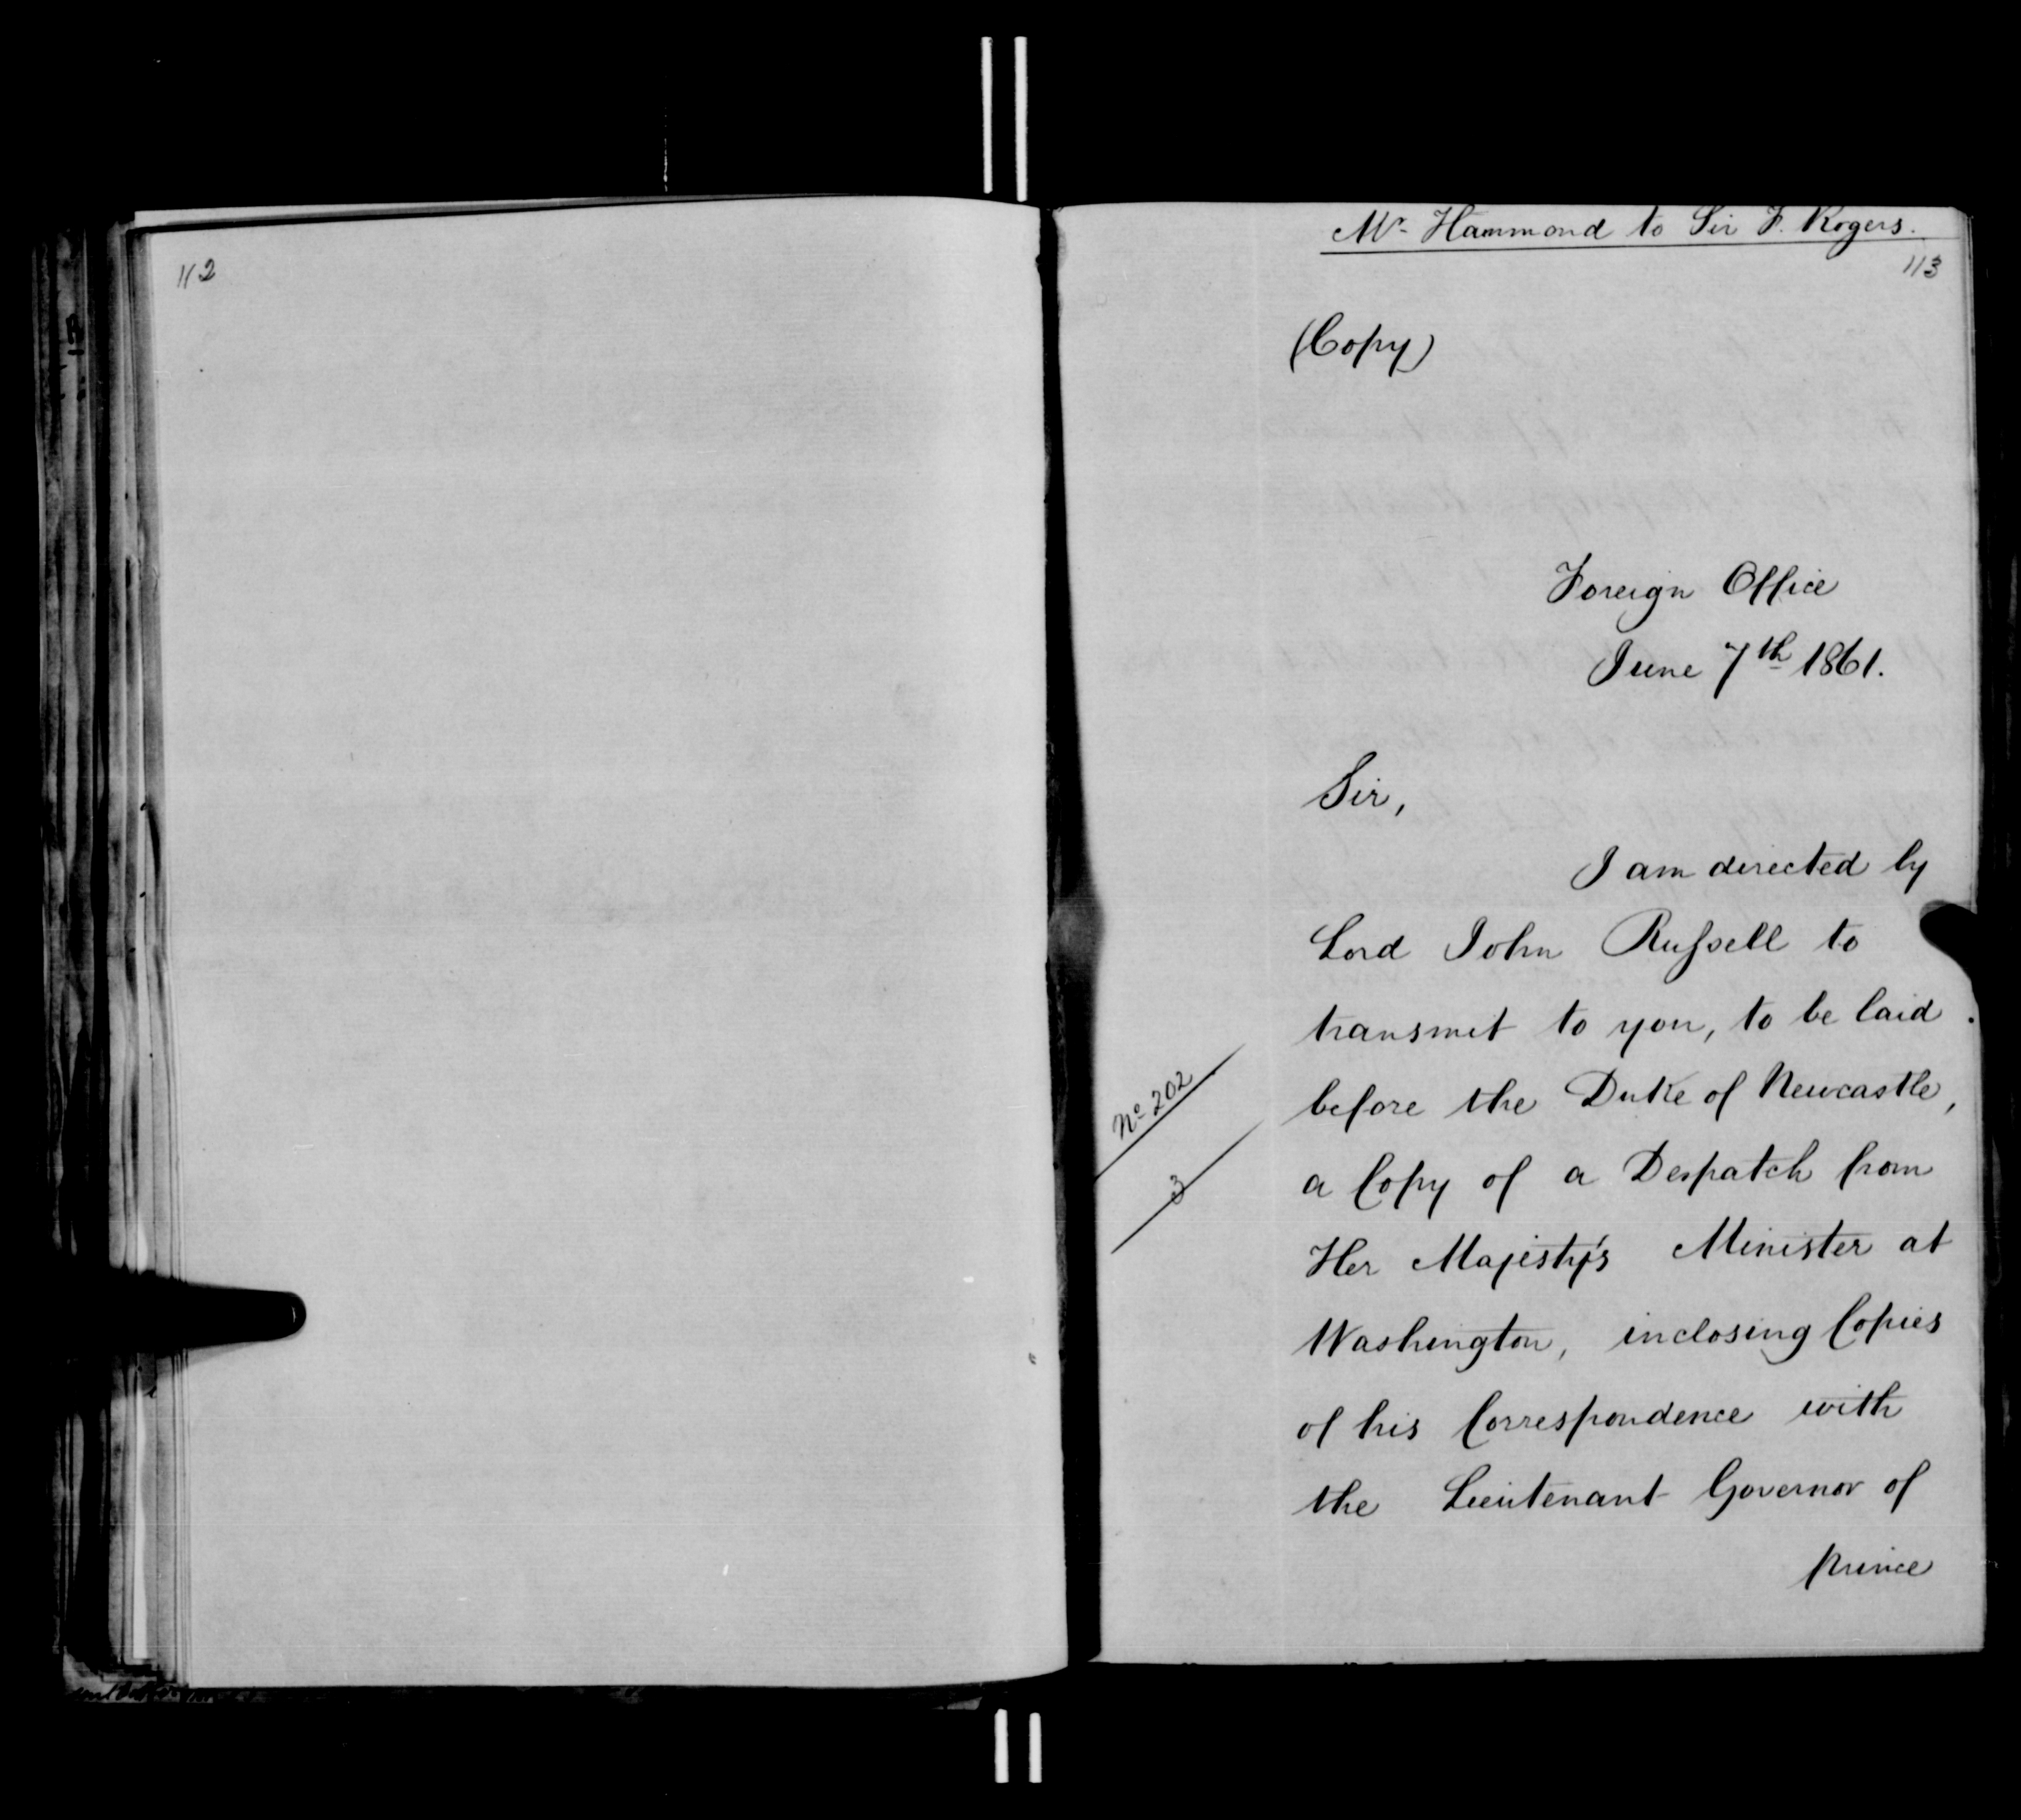 112
Mr. Hammond to Sir F. Rogers.
113
(Copy)
Foreign Office
June 7th 1861.
Sir,
I am directed by
Lord John Russell to
transmit to you, to be laid
before the Duke of Newcastle,
No 202
3
a Copy of a Despatch from
Her Majesty's Minister at
Washington, inclosing Copies
of his Correspondence with
the Lieutenant Governor of
Prince